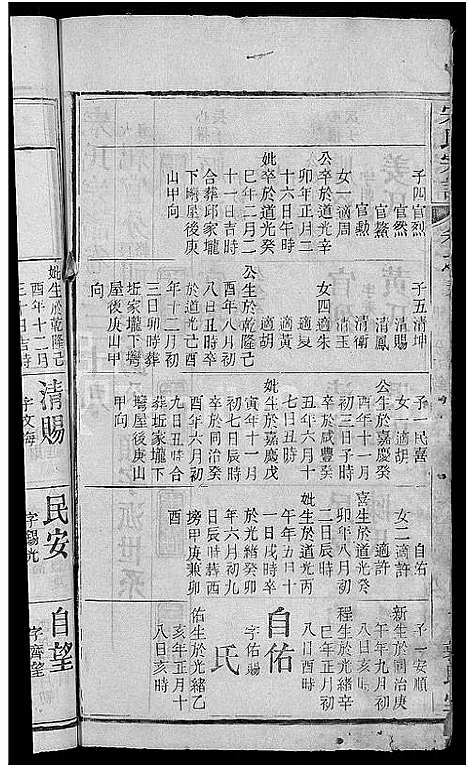 宋氏宗譜
子四官烈
官然
官鰲
官勳
女一適周
公卒於道光辛
卯年正月二
十六日午時
妣卒於道光癸
巳年二月二
十一日吉時
合葬邱家壠
下塆屋後庚
山甲向
子五清坤
清賜
清鳳
清衛
清玉
女四適朱
適夏
適黃
適胡
公生於乾隆己
酉年八月初
八日丑時卒
於道光己酉
年十二月初
三日卯時葬
坵家壠下塆
屋後庚山甲
向
子一民喜
女一適胡
公生於嘉慶癸
酉年十一月
初三日子時
卒於咸豐癸
丑年六月十
七日丑時
妣生於嘉慶戊
寅年十一月
初七日辰時
卒於同治癸
酉年六月初
九日丑時合
葬坵家壠下
塆屋後庚山
甲向
子一自佑
女二適許
適許
喜生於道光癸
卯年八月初
二日辰時
妣生於道光丙
午年五月十
一日戌時卒
於光緒癸卯
年六月初九
日辰時葬酉
塝甲庚兼卯
酉
子一安順
新生於同治庚
午年九月初
八日亥時
程生於光緒辛
巳年正月初
八日酉時
自佑
字佑賜
氏
佑生於光緒乙
亥年正月十
八日亥時
妣生於乾隆己
酉年十二月
三十日吉時
清賜
字文海
民安
字錫光
自望
字齊望